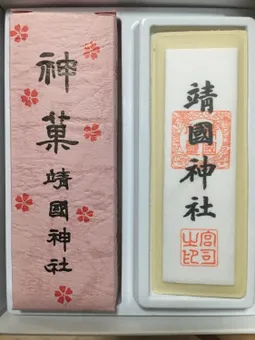 神菓
靖國神社
靖國神社
宮司之印